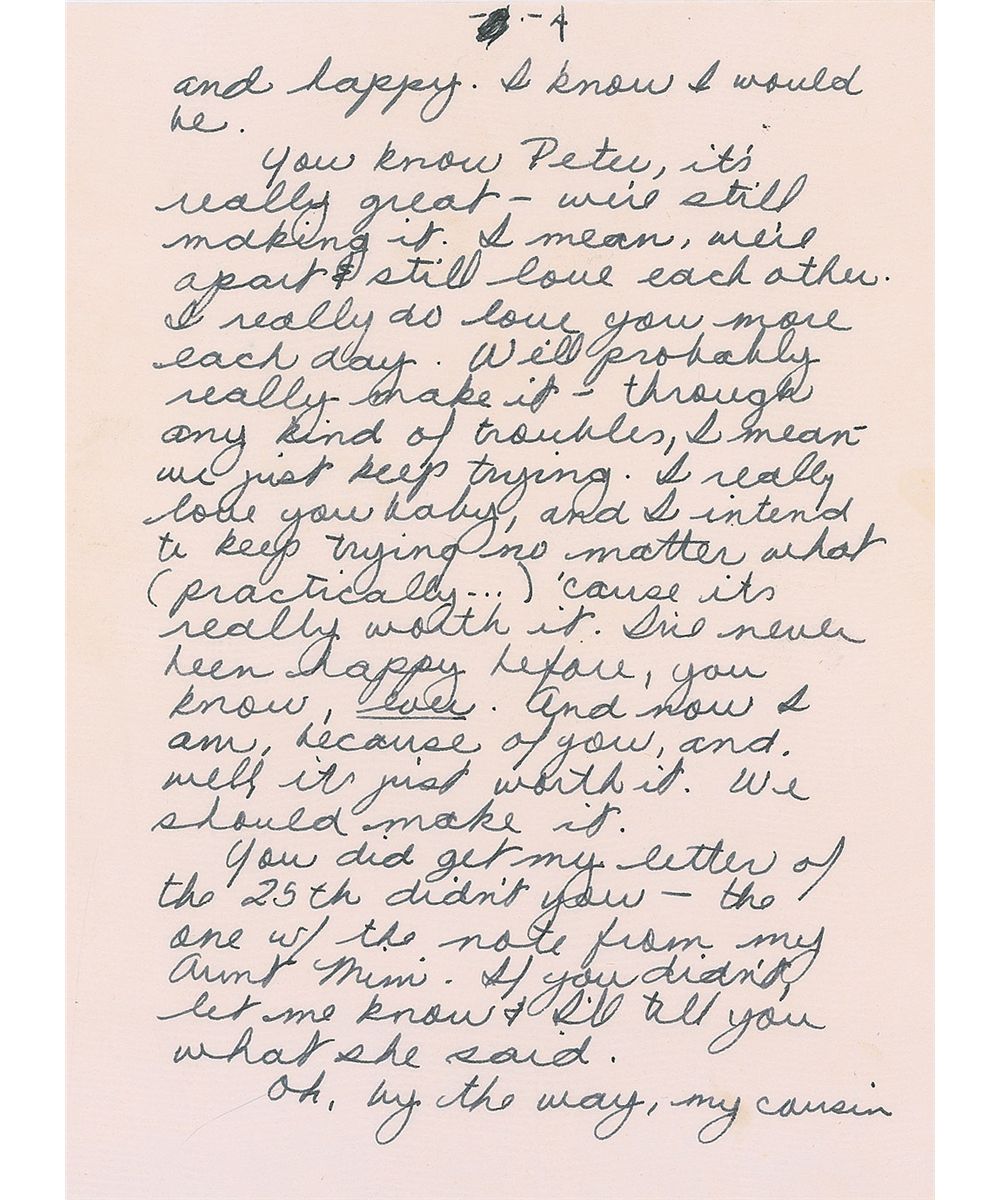 - - 4
and happy. I know I would
be.
You know Peter, it's
really great - we're still
making it. I mean, we're
apart & still love each other.
I really do love you more
each day. We'll probably
really make it - through
any kind of troubles, I mean -
we just keep trying. I really
love you baby, and I intend
to keep trying no matter what
(practically...) 'cause its
really worth it. I've never
been happy before, you
know, ever. And now I
am, because of you, and.
well, it's just worth it. We
should make it.
You did get my letter of
the 25th didn't you - the
one w/ the note from my
Aunt Mimi. If you didn't,
let me know & I'll tell you
what she said.
Oh, by the way, my cousin